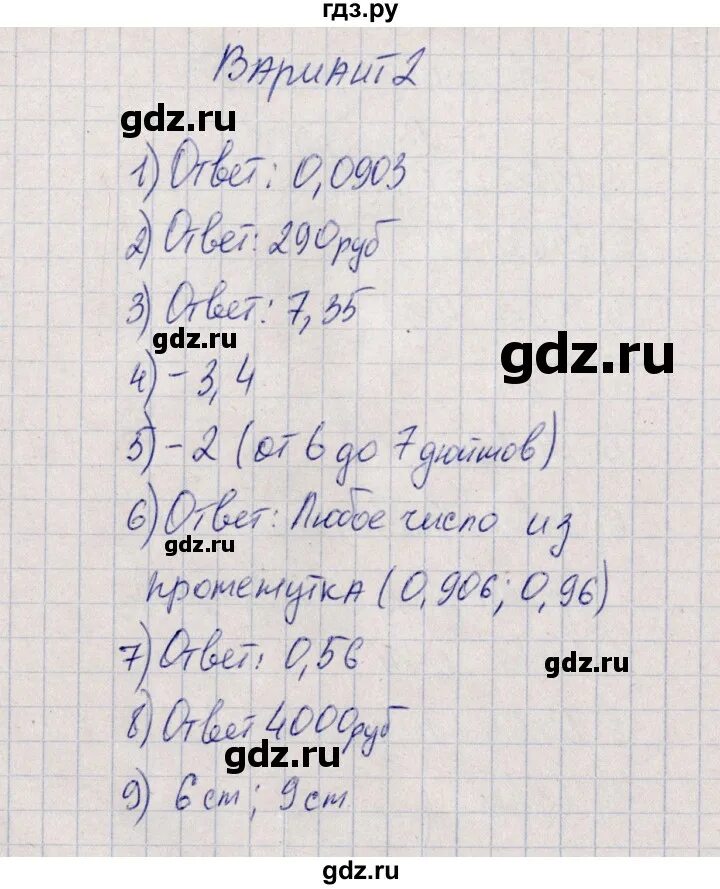 гдз.ру
Вариант 2
gdz.ru
1) Ответ: 0,0903
2) Ответ: 290 руб
3) Ответ: 7,35
gdz.ru
gdz.ru
4) - 3, 4
5) - 2 (от 6 до 7 дюймов)
6) Ответ: Любое число из
gdz.ru
промежутка (0,906; 0,96)
7) Ответ: 0,56
gdz.ru
8) Ответ 4000 руб
gdz.ru
9) 6 см; 9 см
gdz.ru